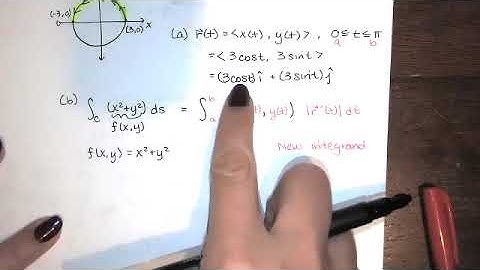 (-3,0)
(3,0)
x
(a) r⃗(t) = <x(t), y(t)>, 0 ≤ t ≤ π
a b
= <3cost, 3sint>
= (3cost)î + (3sint)ĵ
(b) ∫_C (x²+y²) ds = ∫_a^b t), y(t)) |r⃗'(t)| dt
f(x,y)
f(x,y) = x²+y²
New integrand